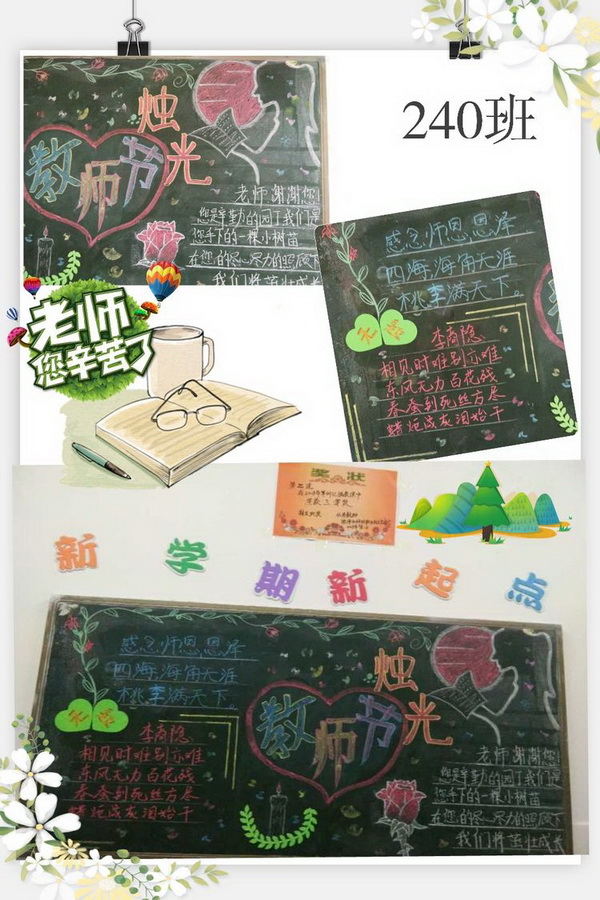 240班
烛光
教师节
老师谢谢您!
您是辛勤的园丁我们是
您手下的一棵小树苗
在您的尽心尽力的照顾下
我们将茁壮成
感念师恩恩泽
四海,海角天涯
桃李满天下。
无言
李商隐
相见时难别亦难
东风无力百花残
春蚕到死丝方尽
蜡炬成灰泪始干
老师
您辛苦了
奖状
新学期新起点
感念师恩恩泽
四海,海角天涯
桃李满天下。
李商隐
相见时难别亦难
东风无力百花残
春蚕到死丝方尽
蜡炬成灰泪始干
烛光
教师节
老师谢谢您
您是辛勤的园丁我们是
您手下的一棵小树苗
在您的尽心尽力的照顾下
我们将茁壮成长